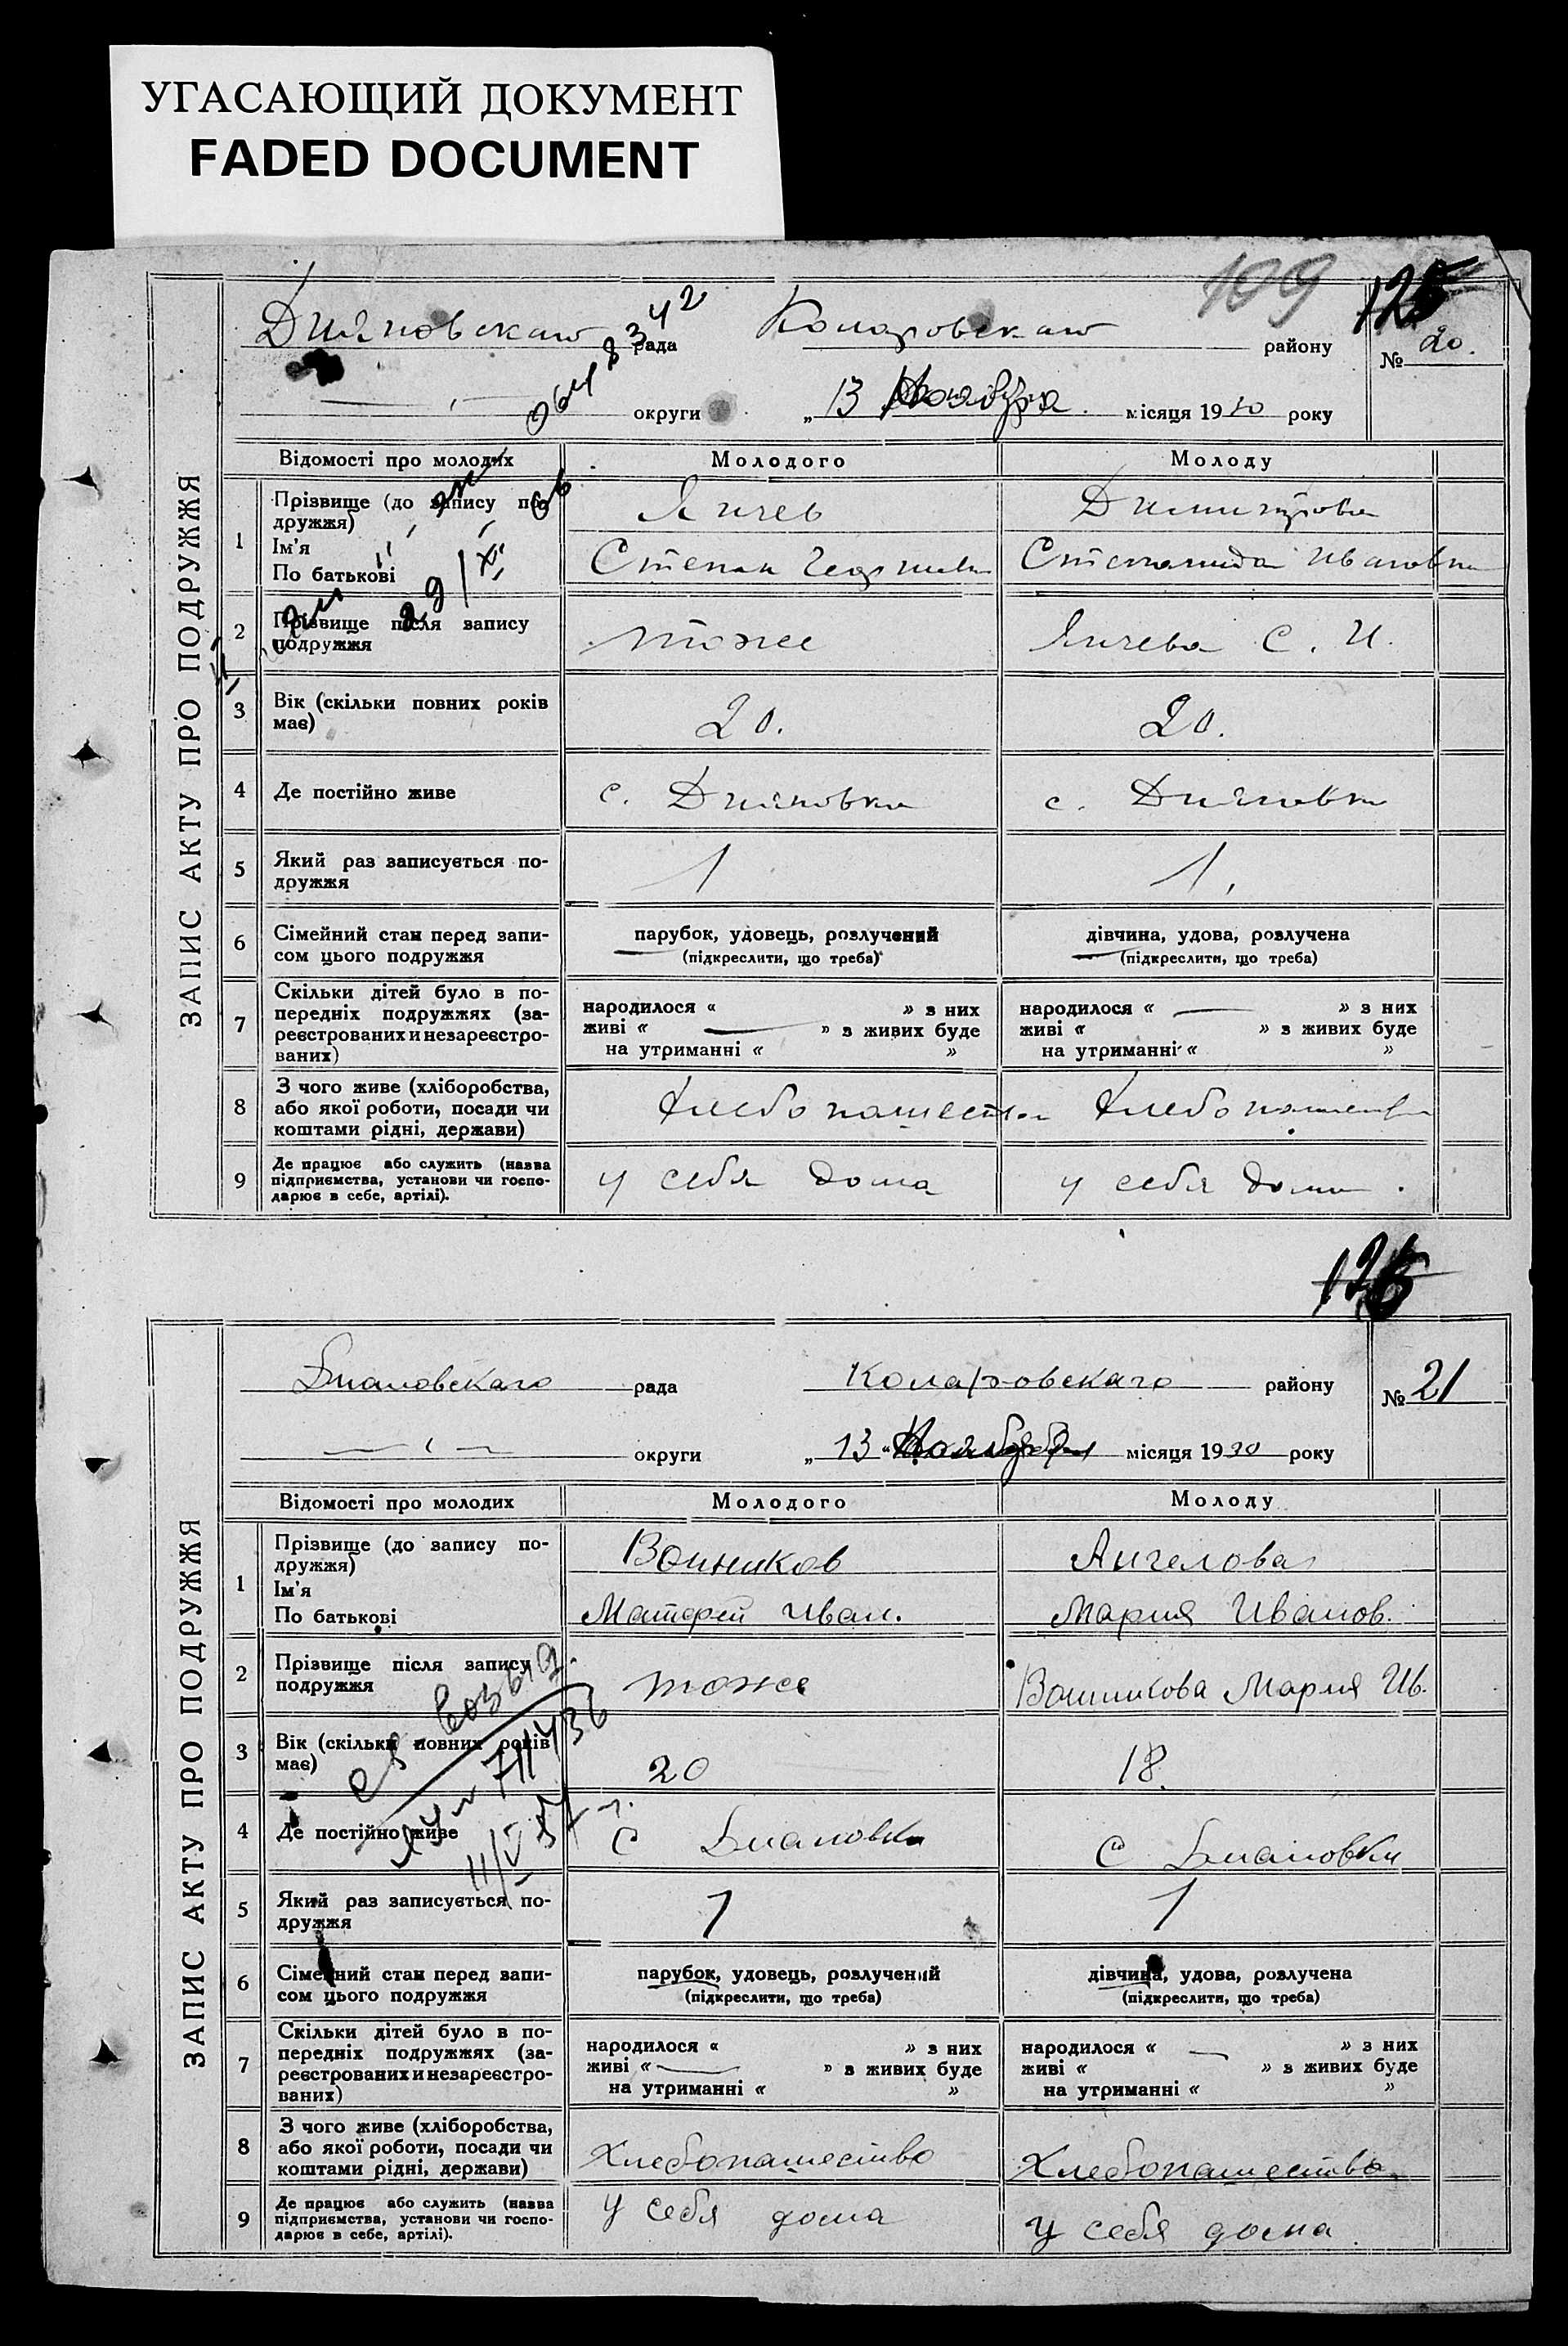 УГАСАЮЩИЙ ДОКУМЕНТ
FADED DOCUMENT
109
125
ЗАПИС АКТУ ПРО ПОДРУЖЖЯ
Дияновскаго рада Коларовскаго району № 20.
округи „ 13 месяця 1930 року
Відомості про молодих Молодого Молоду
1 Прізвище (до запису по-
дружжя) Яичев Димитрова
Ім'я
По батькові Степан Степанида Ивановна
2 Прізвище після запису
подружжя тоже Яичева С. И.
29/XII
3 Вік (скільки повних років
має) 20. 20.
4 Де постійно живе с. Дияновка с. Дияновка
5 Який раз записується по-
дружжя 1 1.
6 Сімейний стан перед запи-
сом цього подружжя парубок, удовець, розлучений дівчина, удова, розлучена
(підкреслити, що треба) (підкреслити, що треба)
7 Скільки дітей було в по-
передніх подружжях (за-
реєстрованих и незареєстро-
ваних)
народилося « » з них народилося « » з них
живі « » з живих буде живі « » з живих буде
на утриманні « » на утриманні « »
8 З чого живе (хліборобства,
або якої роботи, посади чи
коштами рідні, держави) Хлебопашество Хлебопашество
9 Де працює або служить (назва
підприємства, установи чи госпо-
дарює в себе, артілі). у себя дома у себя дома.
126
ЗАПИС АКТУ ПРО ПОДРУЖЖЯ
Диановскаго рада Коларовскаго району № 21
округи „ 13 " місяця 1930 року
Відомості про молодих Молодого Молоду
1 Прізвище (до запису по-
дружжя) Войников Ангелова
Ім'я
По батькові Матфей Иван. Мария Иванов.
2 Прізвище після запису
подружжя тоже Войникова Мария Ив.
3 Вік (скільки повних років
має) 20 18.
4 Де постійно живе с Диановка с Диановки
5 Який раз записується по-
дружжя 1 1
6 Сімейний стан перед запи-
сом цього подружжя парубок, удовець, розлучений дівчина, удова, розлучена
(підкреслити, що треба) (підкреслити, що треба)
7 Скільки дітей було в по-
передніх подружжях (за-
реєстрованих и незареєстро-
ваних)
народилося « » з них народилося « » з них
живі « » з живих буде живі « » з живих буде
на утриманні « » на утриманні « »
8 З чого живе (хліборобства,
або якої роботи, посади чи
коштами рідні, держави) Хлебопашество Хлебопашество
9 Де працює або служить (назва
підприємства, установи чи госпо-
дарює в себе, артілі). У себя дома У себя дома